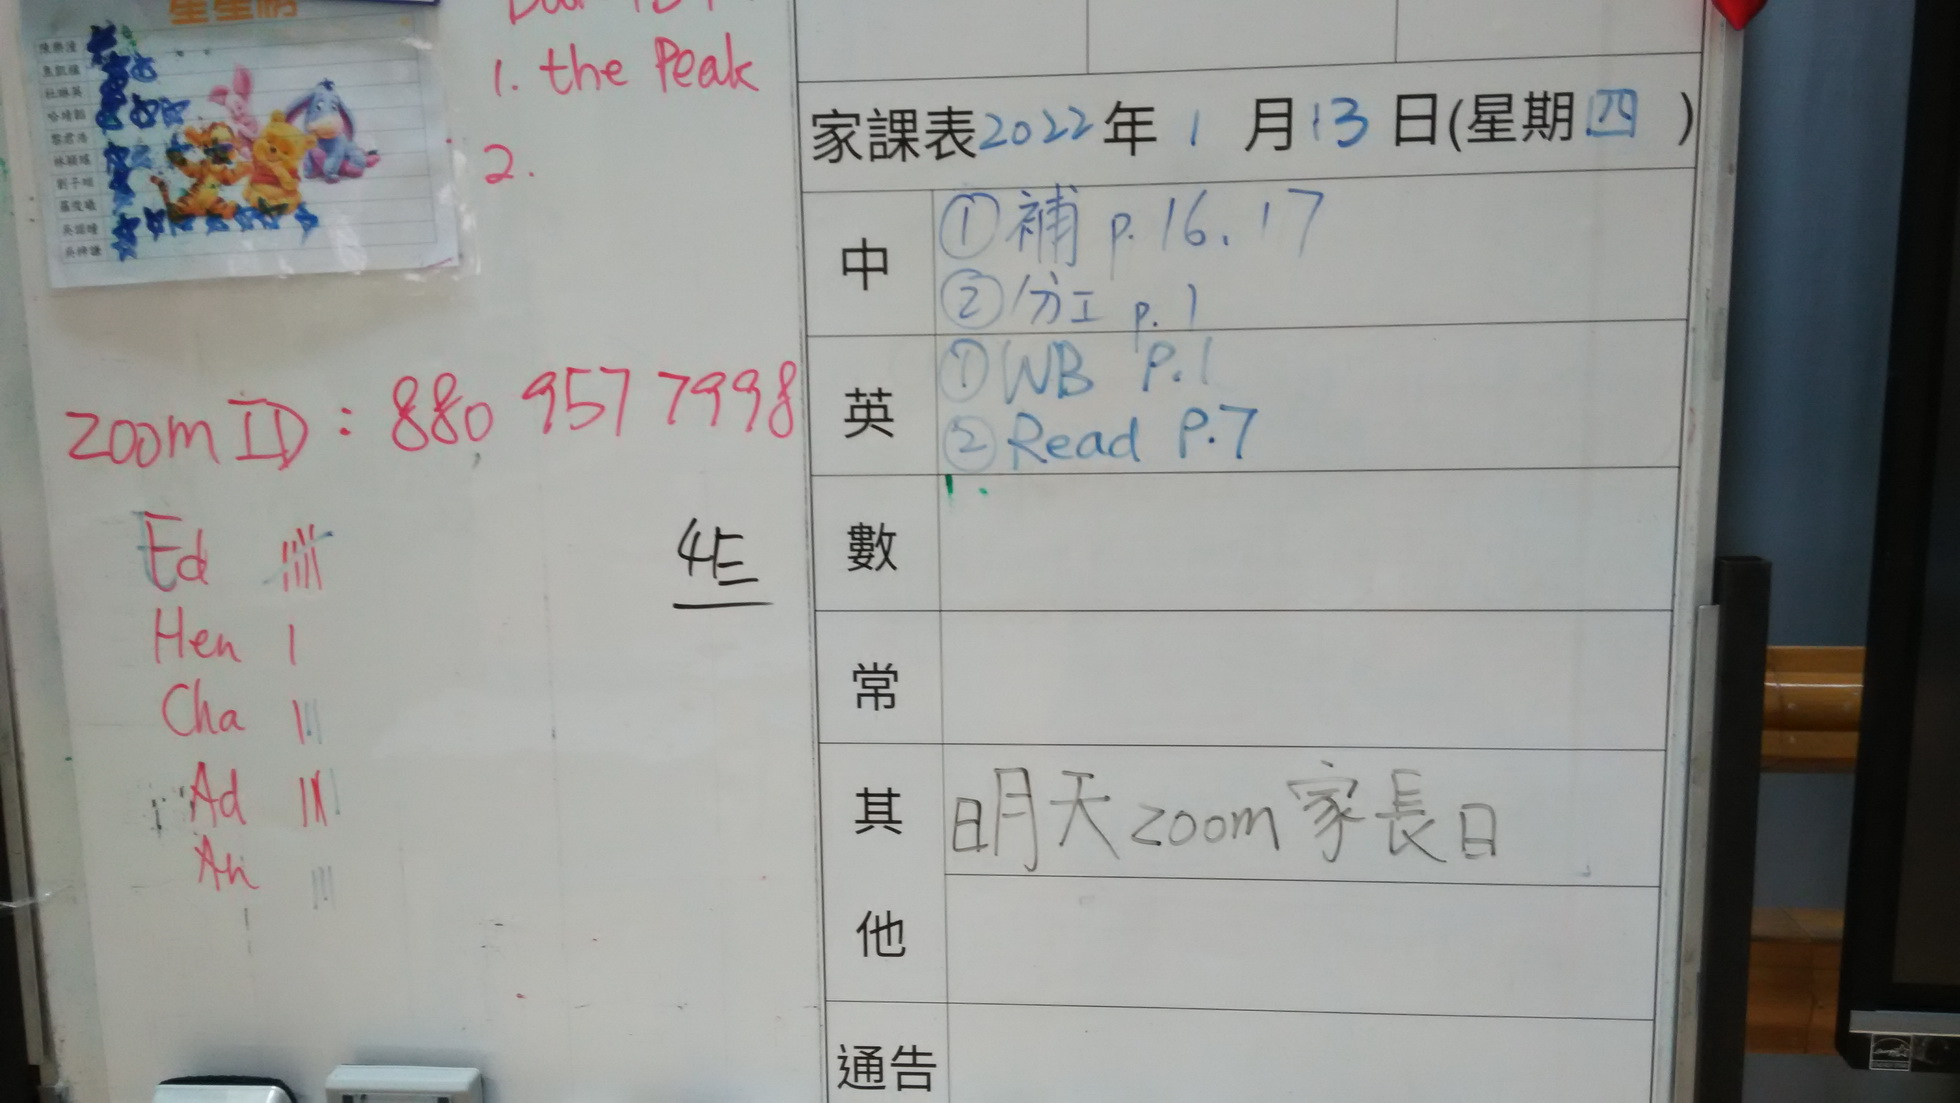 1. the Peak
2.
zoom ID : 880 957 7998
Ed
Hen
Cha
Ad
An
4E
家課表2022年 1 月 13 日(星期四 )
中
① 補 p. 16. 17
② 分工 p. 1
英
① WB P.1
② Read P.7
數
1.
常
其他
明天zoom家長日
通告